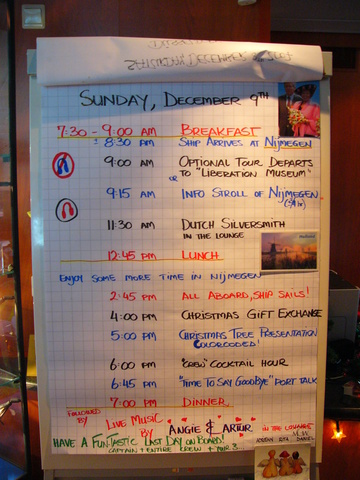 SUNDAY, DECEMBER 9TH
7:30 - 9:00 AM BREAKFAST
± 8:30 AM SHIP ARRIVES AT NIJMEGEN
9:00 AM OPTIONAL TOUR DEPARTS
TO "LIBERATION MUSEUM"
OR
9:15 AM INFO STROLL OF NIJMEGEN
11:30 AM DUTCH SILVERSMITH
IN THE LOUNGE
12:45 PM LUNCH
ENJOY SOME MORE TIME IN NIJMEGEN
2:45 PM ALL ABOARD, SHIP SAILS!
4:00 PM CHRISTMAS GIFT EXCHANGE
5:00 PM CHRISTMAS TREE PRESENTATION
COLORCODED!
6:00 PM "CREW" COCKTAIL HOUR
6:45 PM "TIME TO SAY GOODBYE" PORT TALK
7:00 PM DINNER
FOLLOWED BY LIVE MUSIC BY ANGIE & ARTUR IN THE LOUNGE
HAVE A FUN-TASTIC LAST DAY ON BOARD!
CAPTAIN + ENTIRE CREW +
DANIEL